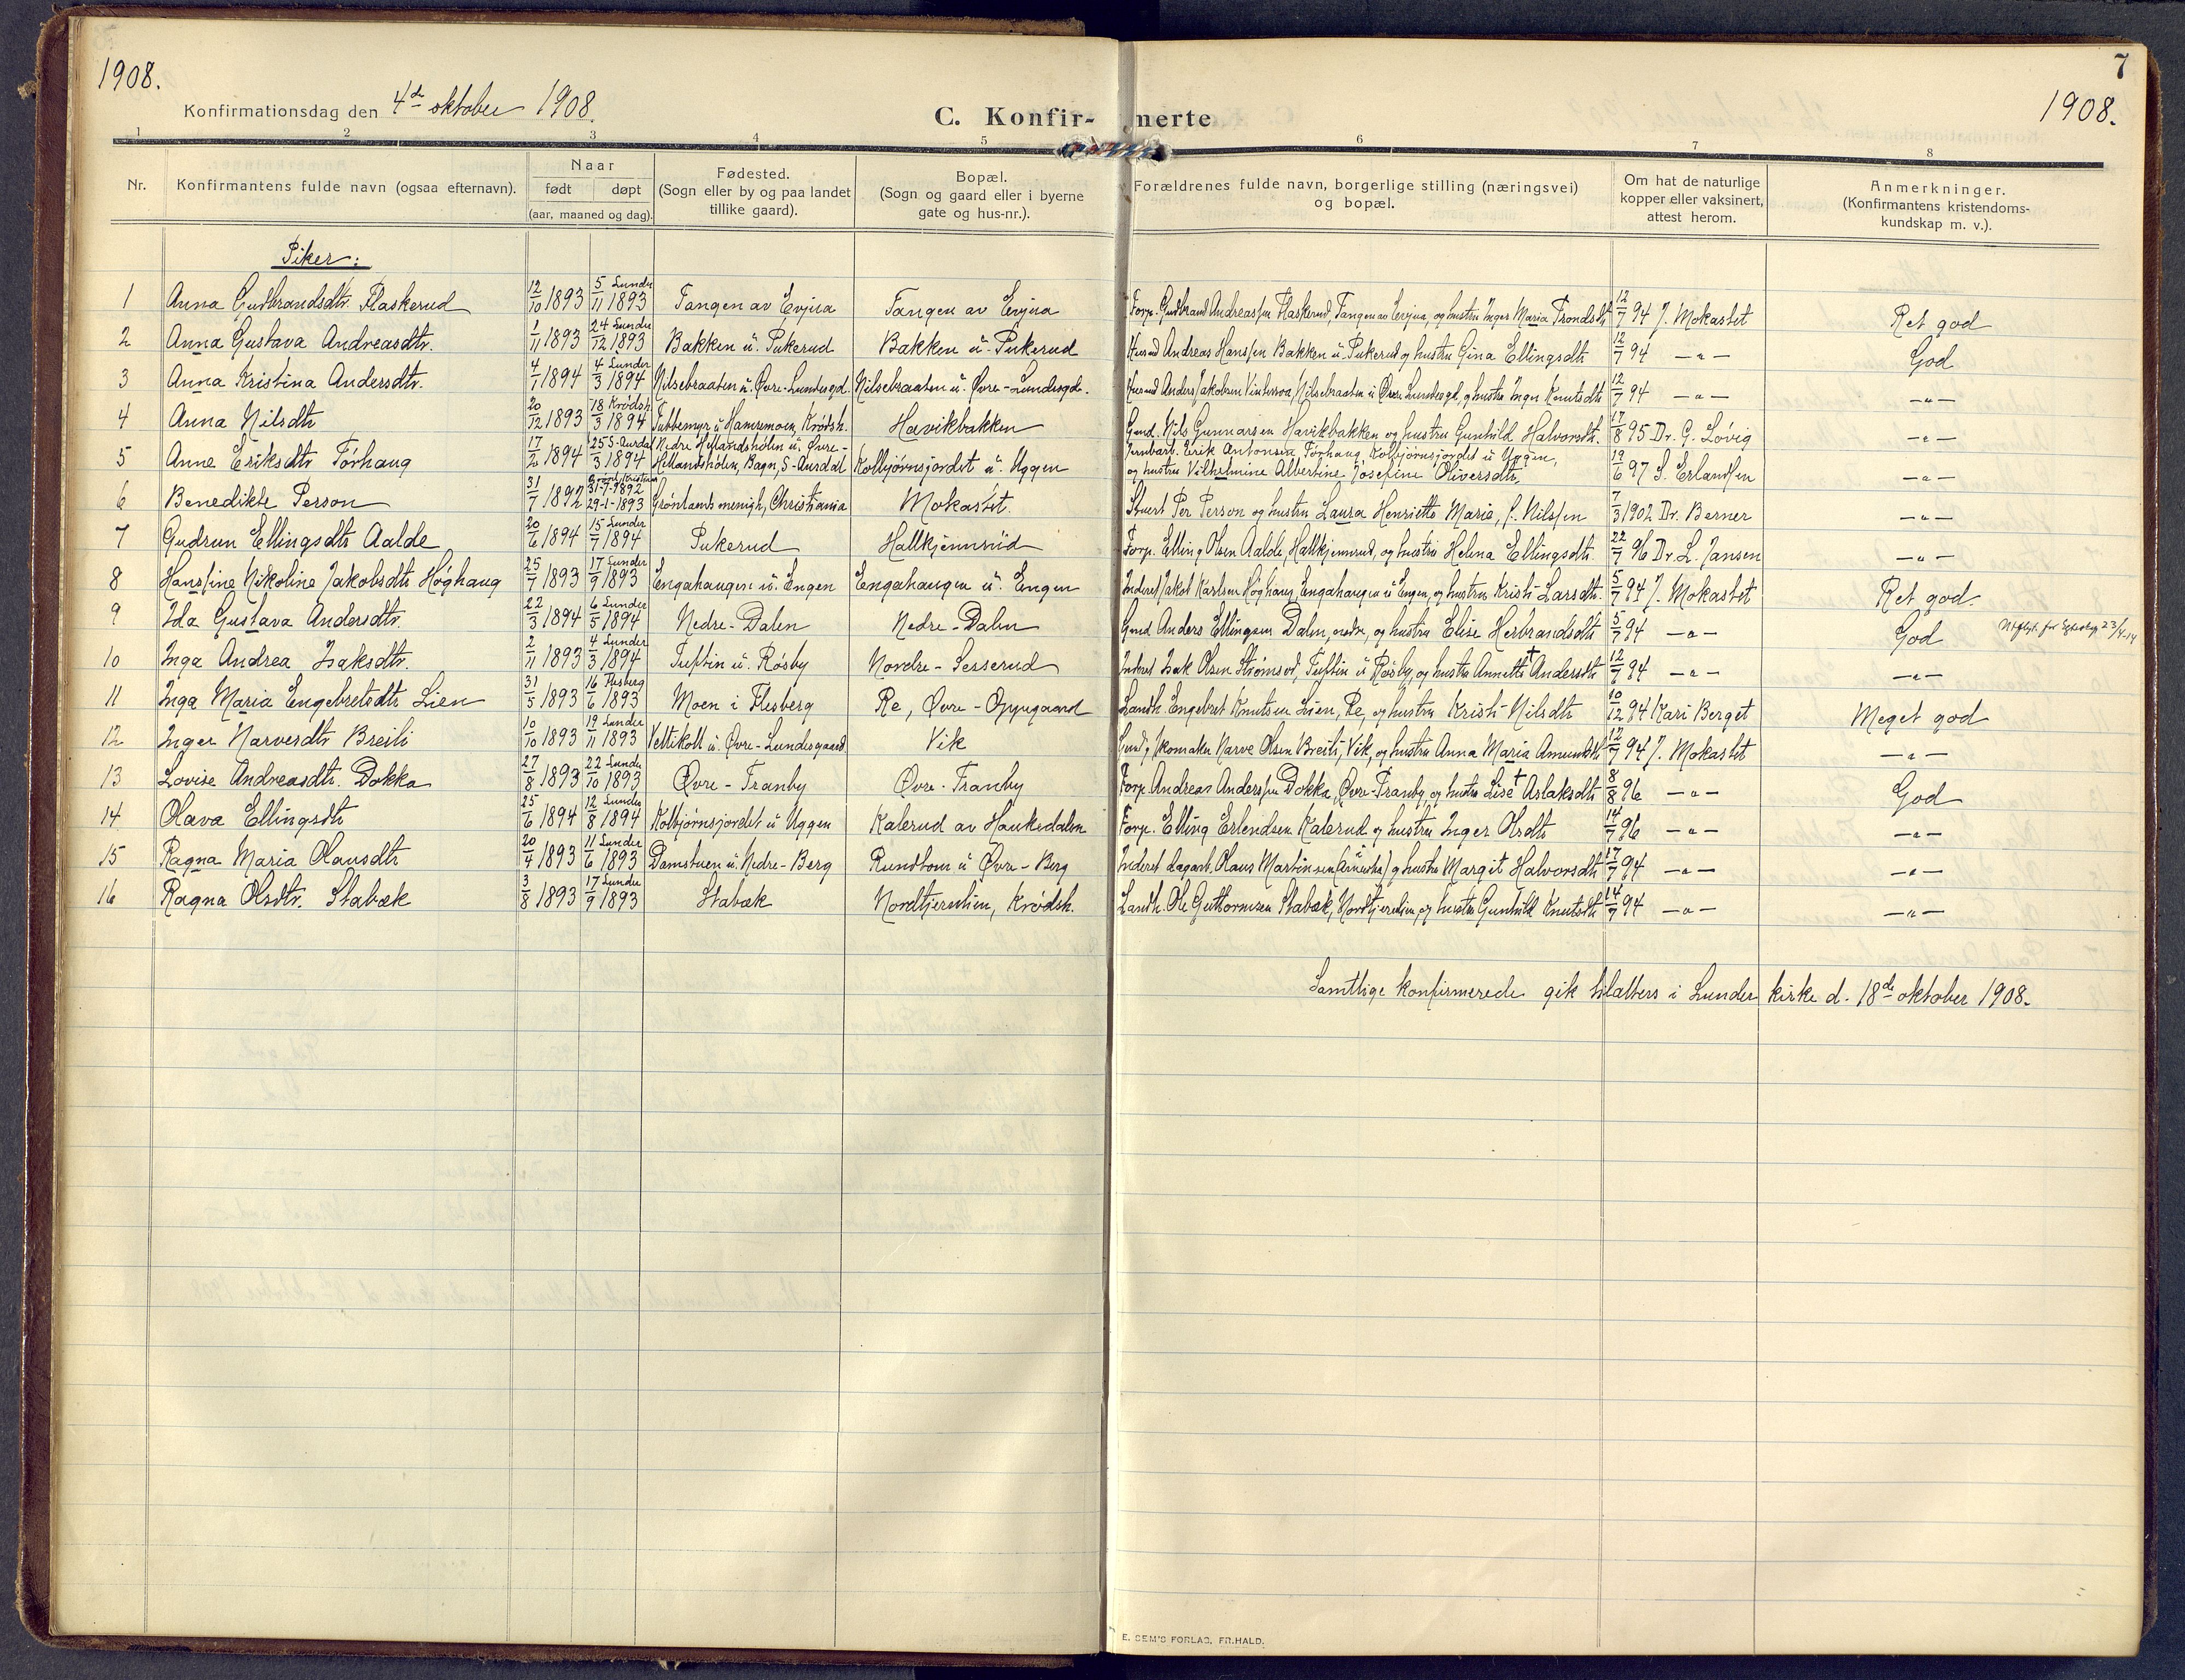 1908.
Konfirmationsdag den 4de oktober 1908.
C. Konfirmerte
7
1908.
1 2 3 4 5 6 7 8
Nr. | Konfirmantens fulde navn (ogsaa efternavn). | Naar født døpt (aar, maaned og dag). | Fødested. (Sogn eller by og paa landet tillike gaard). | Bopæl. (Sogn og gaard eller i byerne gate og hus-nr.). | Forældrenes fulde navn, borgerlige stilling (næringsvei) og bopæl. | Om hat de naturlige kopper eller vaksinert, attest herom. | Anmerkninger. (Konfirmantens kristendoms-kundskap m. v.).
Piker:
1 Anna Gudbrandsdtr. Flaskerud 12/10 1893 5/11 1893 Lunder Tangen av Evjua Tangen av Evjua Forp. Gudbrand Andreassen Flaskerud, Tangen av Evjua, og hustru Inger Maria Trondsdtr 12/7 94 J. Mokastet Ret god
2 Anna Gustava Andreasdtr. 1/11 1893 24/12 1893 Lunder Bakken u. Pukerud Bakken u. Pukerud Husmd Andreas Hanssen Bakken u. Pukerud og hustru Gina Ellingsdtr 12/7 94 —"— God
3 Anna Kristina Andersdtr. 4/1 1894 4/3 1894 Lunder Nilsebraaten u. Øvre-Lundesgd. Nilsebraaten u. Øvre-Lundesgd. Husmd Anders Jakobsen, Nilsebraaten u. Øvre Lundesgd, og hustru Inger Knutsdtr 12/7 94 —"— —"—
4 Anna Nilsdtr 20/12 1893 18/3 1894 Krødsh. Tubbemyr u. Hamremoen, Krødsh. Havikbakken Gmd. Nils Gunnarsen Havikbakken og hustru Gunhild Halvorsdtr. 17/8 95 Dr. G. Løvig —"—
5 Anne Eriksdtr Tørhaug 17/2 1894 25/3 1894 S-Aurdal Nedre Hellandshølen u. Øvre-Hellandshølen, Bagn, S-Aurdal Kolbjørnsjordet u. Uggen Jernbarb. Erik Antonsen Tørhaug, Kolbjørnsjordet u. Uggen, og hustru Vilhelmine Albertine Josefine Oliversdtr, 19/6 97 S. Erlandsen —"—
6 Benedikte Person 31/7 1892 31-7-1892 29-1-1893 Grønlands menigh, Christiania Mokastet. Stuert Per Person og hustru Laura Henriette Marie, f. Nilssen 7/3 1902 Dr. Berner —"—
7 Gudrun Ellingsdtr Aalde 20/6 1894 15/7 1894 Lunder Pukerud Hallkjennrud Forp. Elling Olsen Aalde, Hallkjennrud, og hustru Helena Ellingsdtr. 22/7 96 Dr. L. Jansen —"—
8 Hanssine Nikoline Jakobsdtr Høghaug 25/7 1893 17/9 1893 Lunder Engahaugen u. Engen Engahaugen u. Engen Inderst Jakob Karlsen Høghaug, Engahaugen u. Engen, og hustru Kristi Larsdtr. 5/7 94 J. Mokastet Ret god.
9 Ida Gustava Andersdtr. 22/3 1894 6/5 1894 Lunder Nedre-Dalen Nedre-Dalen Gmd Anders Ellingsen Dalen, nedre, og hustru Elise Herbrandsdtr 5/7 94 —"— God 23/4-14
10 Inga Andrea Isaksdtr. 2/11 1893 4/3 1894 Lunder Tuftin u. Røsby Nordre-Sesserud Inderst Isak Olsen Strømsod, Tuftin u. Røsby, og hustru Annette † Andersdtr 12/7 94 —"— —"—
11 Inga Maria Engebretsdtr Lien 31/5 1893 16/6 1893 Flesberg Moen i Flesberg Re, Øvre-Oppegaard Landh. Engebret Knutsen Lien, Re, og hustru Kristi Nilsdtr 10/12 94 Kari Berget Meget god
12 Inger Narvesdtr Breili 10/10 1893 19/11 1893 Lunder Veltikolt u. Øvre-Lundesgaard Vik Gmd og skomaker Narve Olsen Breili, Vik, og hustru Anna Maria Amundsdtr 12/7 94 J. Mokastet —"—
13 Lovise Andreasdtr. Dokka 27/8 1893 22/10 1893 Lunder Øvre-Tranby Øvre-Tranby Forp. Andreas Anderssen Dokka, Øvre-Tranby, og hustru Lise † Aslaksdtr 8/8 96 —"— God
14 Olava Ellingsdtr 25/6 1894 12/8 1894 Lunder Kolbjørnsjordet u. Uggen Kalerud av Haukedalen Forp. Elling Erlendsen Kalerud og hustru Inger Olsdtr 14/7 96 —"— —"—
15 Ragna Maria Olausdtr 20/4 1893 11/6 1893 Lunder Damstuen u. Nedre-Berg Rundtom u. Øvre-Berg Inderst dagarb. Olaus Martinsen og hustru Margit Halvorsdtr 17/7 94 —"— —"—
16 Ragna Olsdtr. Stabæk 3/8 1893 17/9 1893 Lunder Stabæk Nordtjernlien, Krødsh. Landh. Ole Guttormsen Stabæk, Nordtjernlien, og hustru Gunhild Knutsdtr 14/7 94 —"— —"—
Samtlige konfirmerede gik tilalters i Lunder kirke d. 18de oktober 1908.
E. SEM'S FORLAG, FR.HALD.